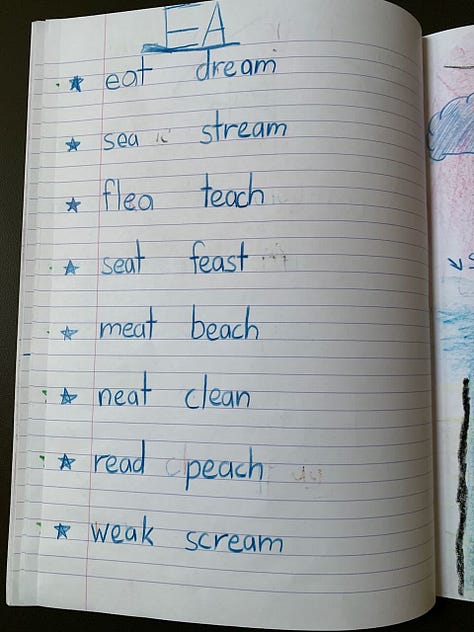 EA
eat dream
sea stream
flea teach
seat feast
meat beach
neat clean
read peach
weak scream